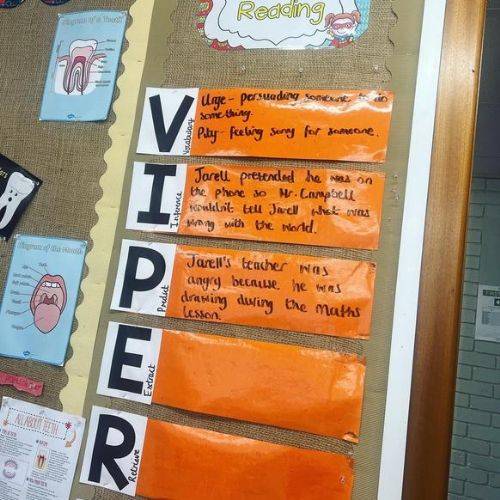 Reading
Diagram of a Tooth
V
Vocabulary
Urge - persuading someone to do
something.
Pity - feeling sorry for someone.
I
Inference
Jarell pretended he was on
the phone so Mr. Campbell
wouldn't tell Jarell what was
wrong with the world.
P
Predict
Jarell's teacher was
angry because he was
drawing during the Maths
lesson.
E
Extract
R
Retrieve
Diagram of the Mouth
ALL ABOUT TEETH